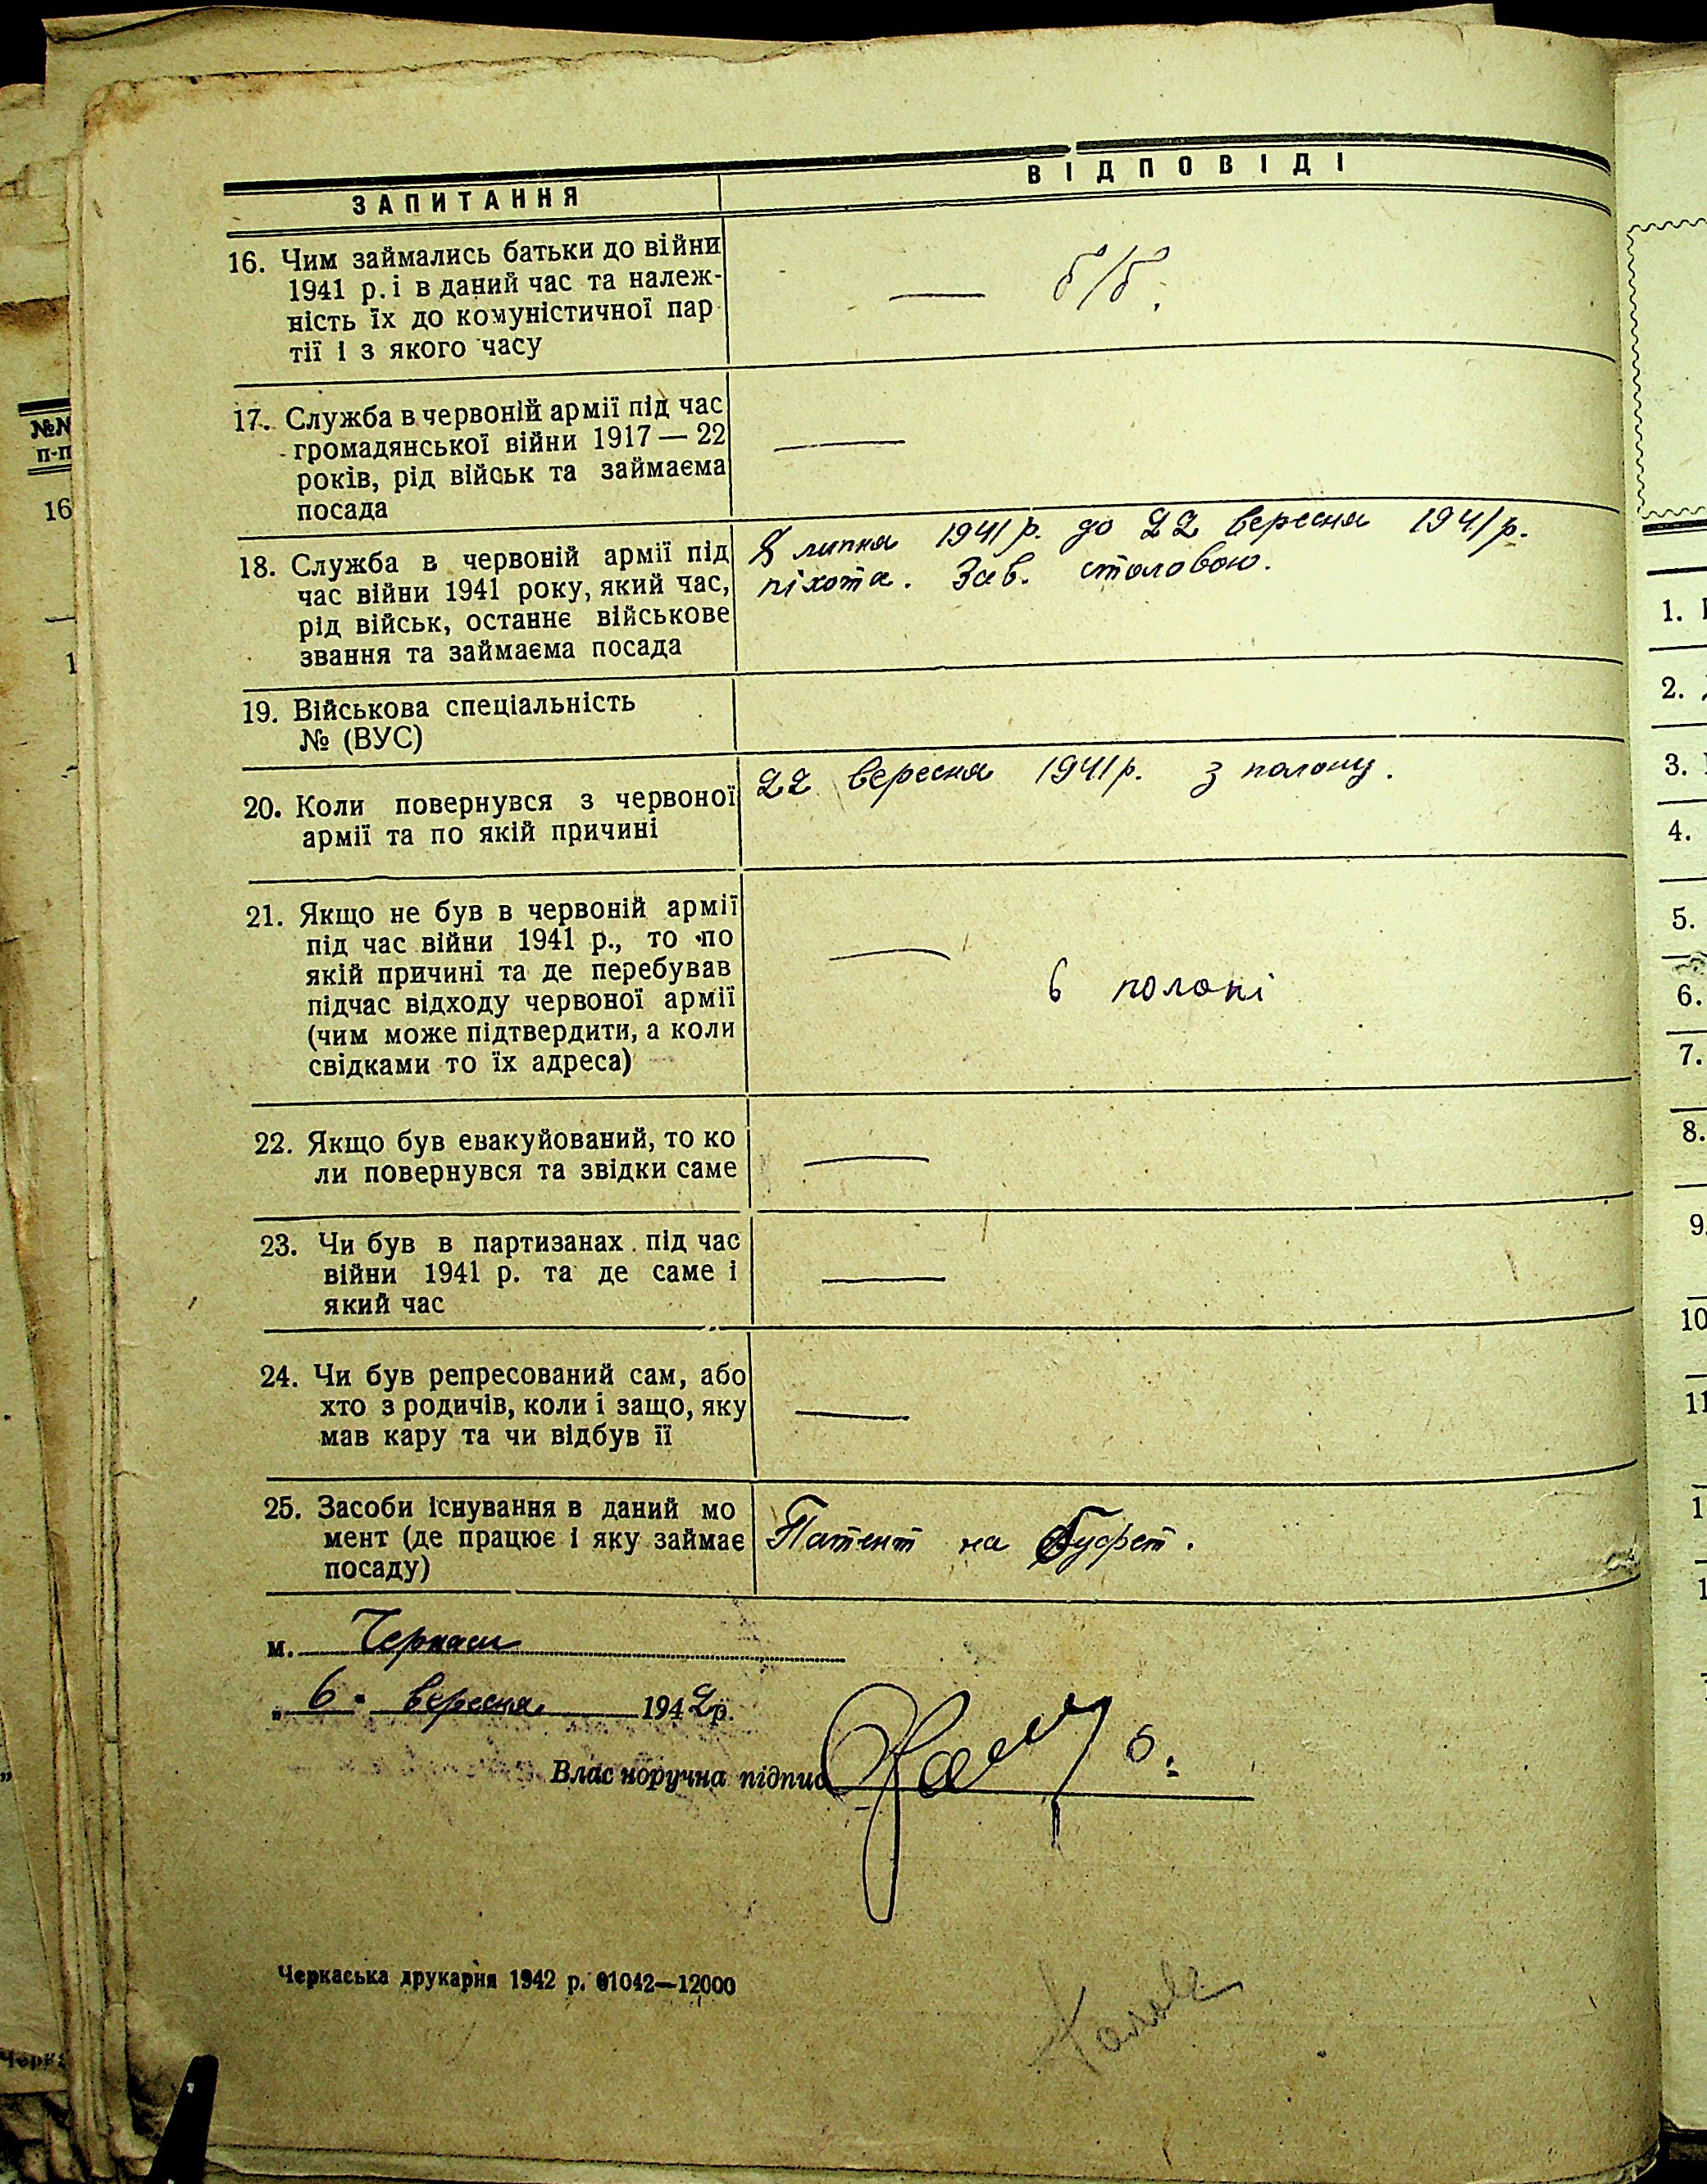 ЗАПИТАННЯ
ВІДПОВІДІ
16. Чим займались батьки до війни
1941 р. і в даний час та належ-
ність їх до комуністичної пар
тії і з якого часу
— б/б.
17. Служба в червоній армії під час
громадянської війни 1917 — 22
років, рід військ та займаєма
посада
—
18. Служба в червоній армії під
час війни 1941 року, який час,
рід військ, останнє військове
звання та займаєма посада
8 липня 1941 р. до 22 вересня 1941 р.
піхота. Зав. столовою.
19. Військова спеціальність
№ (ВУС)
20. Коли повернувся з червоної
армії та по якій причині
22 вересня 1941 р. з полону.
21. Якщо не був в червоній армії
під час війни 1941 р., то по
якій причині та де перебував
підчас відходу червоної армії
(чим може підтвердити, а коли
свідками то їх адреса)
—
в полоні
22. Якщо був евакуйований, то ко
ли повернувся та звідки саме
—
23. Чи був в партизанах під час
війни 1941 р. та де саме і
який час
—
24. Чи був репресований сам, або
хто з родичів, коли і защо, яку
мав кару та чи відбув її
—
25. Засоби існування в даний мо
мент (де працює і яку займає
посаду)
Патент на буфет.
м. Черкаси
„ 6 " вересня 1942 р.
Власноручна підпис
Черкаська друкарня 1942 р. 01042—12000
№№
п-п
16
1
1.
2.
3.
4.
5.
6.
7.
8.
9.
10
11